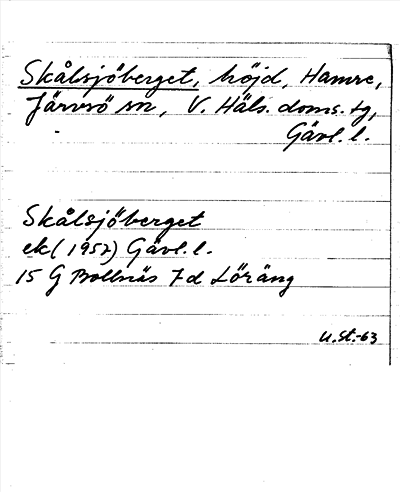 Skålsjöberget, höjd, Hamre,
Järvsö sn, V. Häls. doms. tg,
Gävl. l.
Skålsjöberget
ek (1957) Gävl. l.
15 G Bollnäs 7d Löräng
U.St.-63